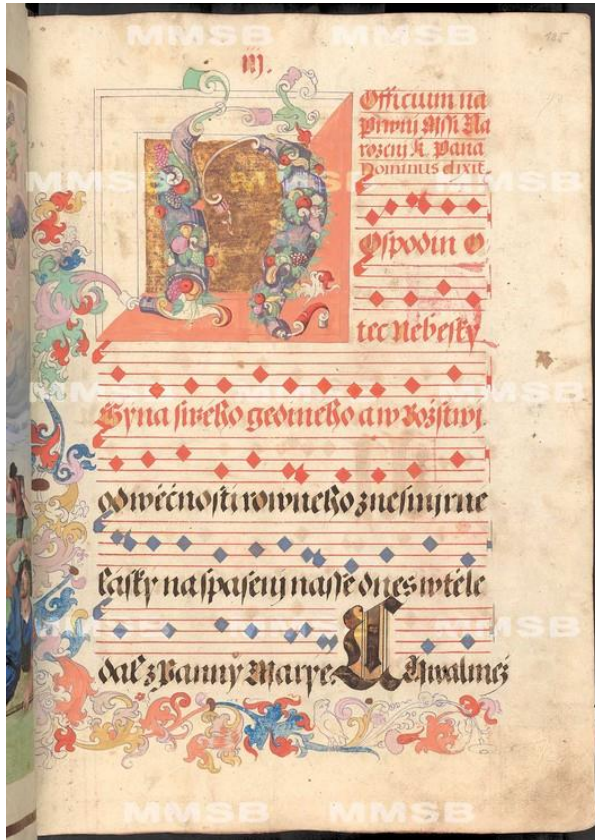 iij.
125
Officium na
Prwnij Mssi Na
rozenij k. Pana
Dominus dixit.
H
Ospodin O
tec Nebesky
Syna sweho gedineho a w Božstwi
od wěčnosti rowneho znesmijrne
lásky na spasenij nasse dnes w těle
dal z Panny Marye. Chwalmež
MMSB